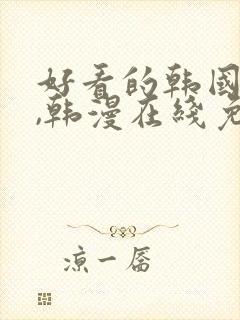 好看的韩国
,韩漫在线免
凉一孱